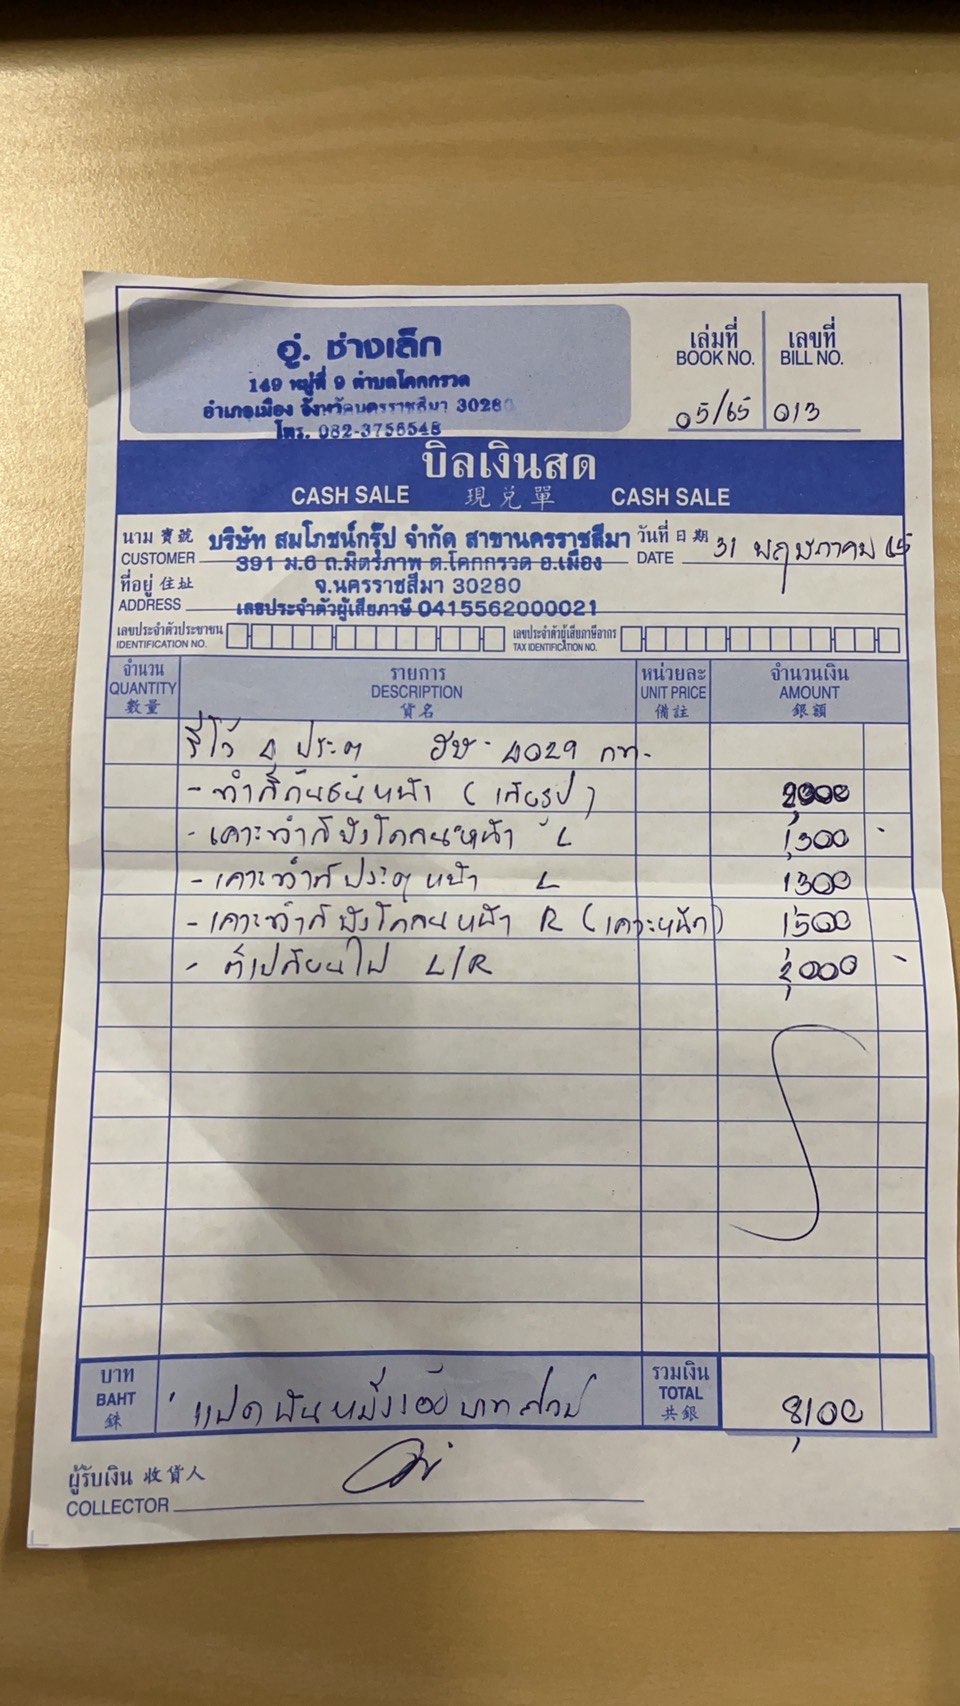 อู่. ช่างเล็ก
149 หมู่ที่ 9 ตำบลโคกกรวด
อำเภอเมือง จังหวัดนครราชสีมา 30280
โทร. 082-3756548
เล่มที่ เลขที่
BOOK NO. BILL NO.
05/65 013
บิลเงินสด
CASH SALE 現兌單 CASH SALE
นาม 寶號 บริษัท สมโภชน์กรุ๊ป จำกัด สาขานครราชสีมา วันที่ 日期 31 พฤษภาคม 65
CUSTOMER 391 ม.6 ถ.มิตรภาพ ต.โคกกรวด อ.เมือง DATE
ที่อยู่ 住址 จ.นครราชสีมา 30280
ADDRESS เลขประจำตัวผู้เสียภาษี 0415562000021
เลขประจำตัวประชาชน เลขประจำตัวผู้เสียภาษีอากร
IDENTIFICATION NO. TAX IDENTIFICATION NO.
จำนวน รายการ หน่วยละ จำนวนเงิน
QUANTITY DESCRIPTION UNIT PRICE AMOUNT
數量 貨名 備註 銀額
รีโว้ 4 ประตู 4029 กท.
- ทำสีกันชนหน้า (เสียรูป) 2,000
- เคาะทำสีบังโคลนหน้า L 1,300 -
- เคาะทำสีประตูหน้า L 1300
- เคาะทำสีบังโคลนหน้า R (เคาะหนัก) 1500
- เปลี่ยนไฟ L/R 2,000 -
บาท รวมเงิน
BAHT แปดพันหนึ่งร้อยบาทถ้วน TOTAL 8,100
銖 共銀
ผู้รับเงิน 收貨人
COLLECTOR